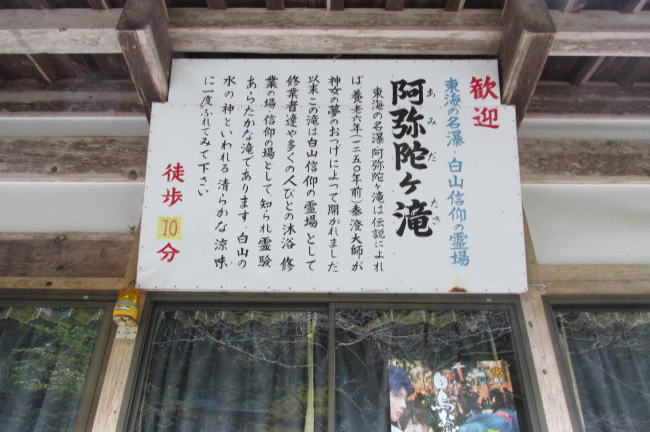 歓迎
東海の名瀑・白山信仰の霊場
阿弥陀ヶ滝
あみだ たき
東海の名瀑阿弥陀ヶ滝は伝説によれ
ば養老六年(一二五〇年前)泰澄大師が
神女の夢のおつげによつて開かれました
以来この滝は白山信仰の霊場として
修業者達や多くの人びとの沐浴 修
業の場 信仰の場として知られ霊験
あらたかな滝であります 白山の
水の神といわれる清らかな涼味
に一度ふれてみて下さい
徒歩10分